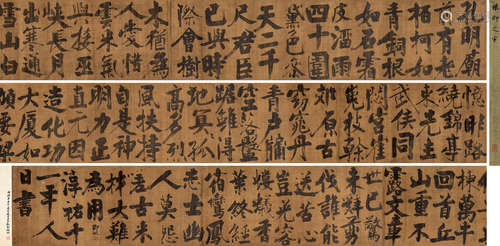 孔明廟
前有老
柏柯如
青銅根
如石霜
皮溜雨
四十圍
黛色參
天二千
尺君臣
已與時
際會樹
木猶為
人愛惜
雲來氣
接巫
峽長月
出寒通
雪山白
憶昨路
繞錦亭
東先主
武侯同
閟宮崔
嵬枝幹
郊原古
窈窕丹
青戶牖
空落盤
踞雖得
地冥孤
高多烈
風扶持
自是神
明力正
直元因
造化功
大厦如
傾要梁
棟萬牛
回首丘
山重不
露文章
世已驚
伐誰能
送苦心
豈免容
螻蟻香
葉終經
宿鸞鳳
志士幽
人莫怨
古来
材大難
為用
淳祐十
一年人
日書